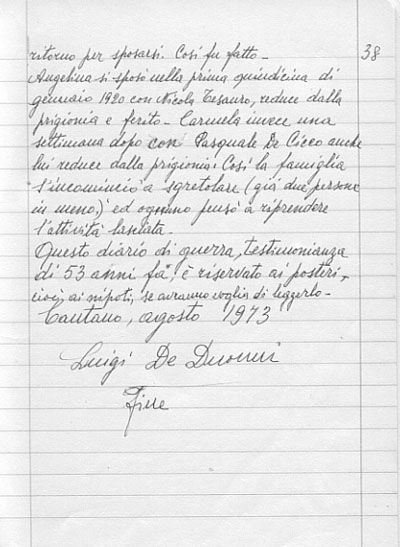 38
ritorno per sposarsi. Così fu fatto_
Angelina si sposò nella prima quindicina di
gennaio 1920 con Nicola Tesauro, reduce dalla
prigionia e ferito_ Carmela invece una
settimana dopo con Pasquale De Cicco anche
lui reduce dalla prigionia. Così la famiglia
s'incominciò a sgretolare (già due persone
in meno,) ed ognuno pensò a riprendere
l'attività lasciata_
Questo diario di guerra, testimonianza
di 53 anni fà, è riservato ai posteri,
cioè, ai nipoti, se avranno voglia di leggerlo_
agosto 1973
Luigi De
Fine